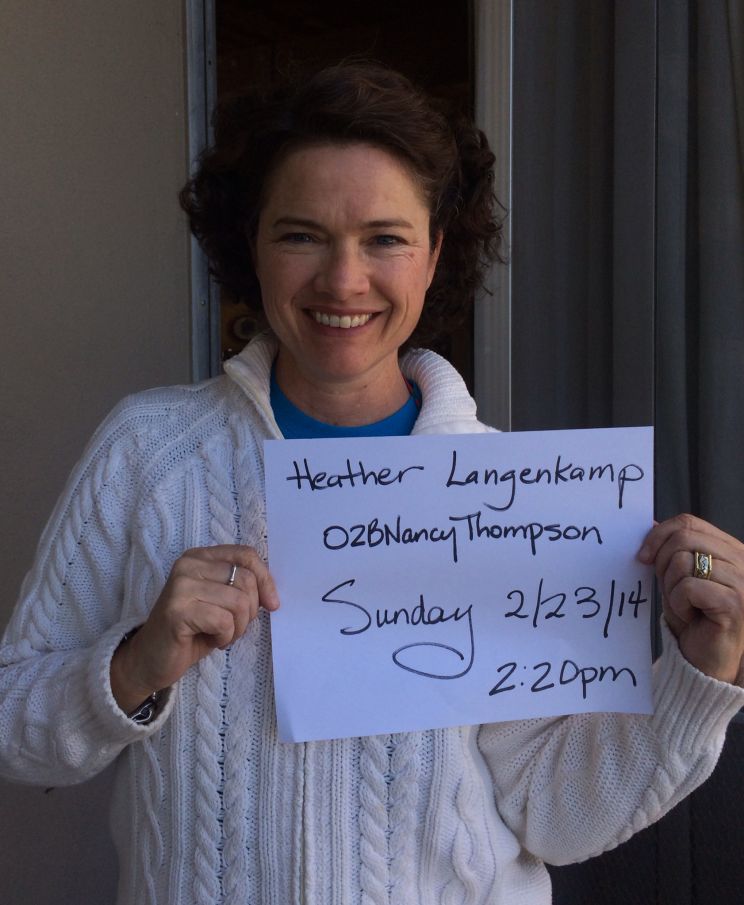 Heather Langenkamp
O2BNancyThompson
Sunday 2/23/14
2:20pm